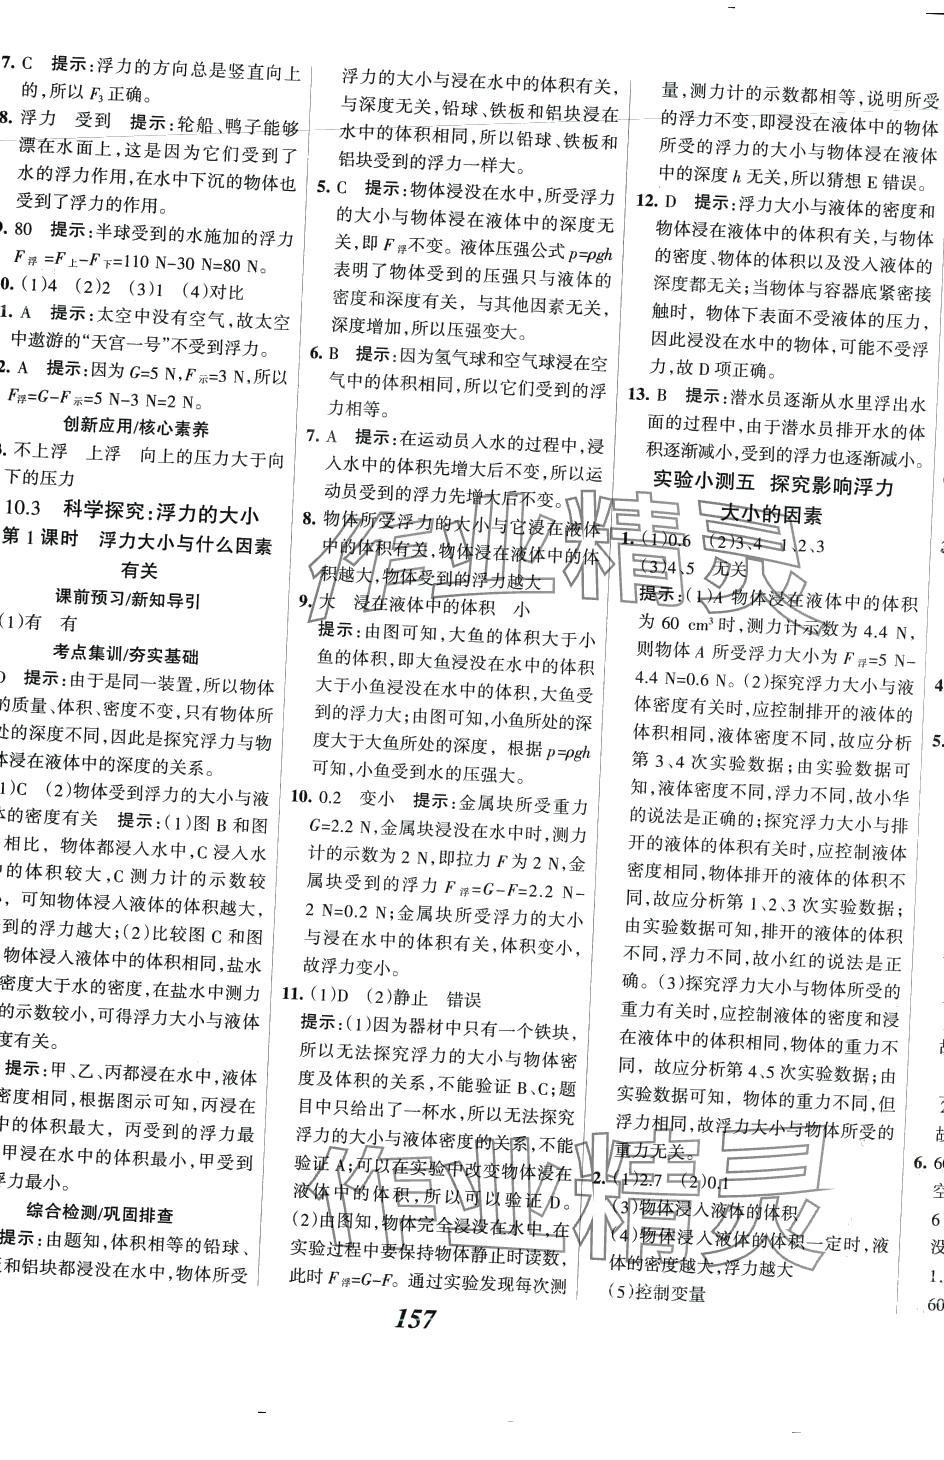 7. C 提示:浮力的方向总是竖直向上
的,所以 F₃ 正确。
8. 浮力 受到 提示:轮船、鸭子能够
漂在水面上,这是因为它们受到了
水的浮力作用,在水中下沉的物体也
受到了浮力的作用。
80 提示:半球受到的水施加的浮力
F浮=F上-F下=110 N-30 N=80 N。
0. (1)4 (2)2 (3)1 (4)对比
1. A 提示:太空中没有空气,故太空
中遨游的“天宫一号”不受到浮力。
2. A 提示:因为 G=5 N,F示=3 N,所以
F浮=G-F示=5 N-3 N=2 N。
创新应用/核心素养
不上浮 上浮 向上的压力大于向
下的压力
10.3 科学探究:浮力的大小
第 1 课时 浮力大小与什么因素
有关
课前预习/新知导引
(1)有 有
考点集训/夯实基础
D 提示:由于是同一装置,所以物体
的质量、体积、密度不变,只有物体所
处的深度不同,因此是探究浮力与物
体浸在液体中的深度的关系。
(1)C (2)物体受到浮力的大小与液
体的密度有关 提示:(1)图 B 和图
相比,物体都浸入水中,C 浸入水
中的体积较大,C 测力计的示数较
,可知物体浸入液体的体积越大,
到的浮力越大;(2)比较图 C 和图
物体浸入液体中的体积相同,盐水
密度大于水的密度,在盐水中测力
的示数较小,可得浮力大小与液体
度有关。
提示:甲、乙、丙都浸在水中,液体
密度相同,根据图示可知,丙浸在
中的体积最大,丙受到的浮力最
甲浸在水中的体积最小,甲受到
浮力最小。
综合检测/巩固排查
提示:由题知,体积相等的铅球、
和铝块都浸没在水中,物体所受
浮力的大小与浸在水中的体积有关,
与深度无关,铅球、铁板和铝块浸在
水中的体积相同,所以铅球、铁板和
铝块受到的浮力一样大。
5. C 提示:物体浸没在水中,所受浮力
的大小与物体浸在液体中的深度无
关,即 F浮不变。液体压强公式 p=ρgh
表明了物体受到的压强只与液体的
密度和深度有关,与其他因素无关,
深度增加,所以压强变大。
6. B 提示:因为氢气球和空气球浸在空
气中的体积相同,所以它们受到的浮
力相等。
7. A 提示:在运动员入水的过程中,浸
入水中的体积先增大后不变,所以运
动员受到的浮力先增大后不变。
8. 物体所受浮力的大小与它浸在液体
中的体积有关,物体浸在液体中的体
积越大,物体受到的浮力越大
9. 大 浸在液体中的体积 小
提示:由图可知,大鱼的体积大于小
鱼的体积,即大鱼浸没在水中的体积
大于小鱼浸没在水中的体积,大鱼受
到的浮力大;由图可知,小鱼所处的深
度大于大鱼所处的深度,根据 p=ρgh
可知,小鱼受到水的压强大。
10. 0.2 变小 提示:金属块所受重力
G=2.2 N,金属块浸没在水中时,测力
计的示数为 2 N,即拉力 F 为 2 N,金
属块受到的浮力 F浮=G-F=2.2 N-
2 N=0.2 N;金属块所受浮力的大小
与浸在水中的体积有关,体积变小,
故浮力变小。
11. (1)D (2)静止 错误
提示:(1)因为器材中只有一个铁块,
所以无法探究浮力的大小与物体密
度及体积的关系,不能验证 B、C;题
目中只给出了一杯水,所以无法探究
浮力的大小与液体密度的关系,不能
验证 A;可以在实验中改变物体浸在
液体中的体积,所以可以验证 D。
(2)由图知,物体完全浸没在水中,在
实验过程中要保持物体静止时读数,
此时 F浮=G-F。通过实验发现每次测
量,测力计的示数都相等,说明所受
的浮力不变,即浸没在液体中的物体
所受的浮力的大小与物体浸在液体
中的深度 h 无关,所以猜想 E 错误。
12. D 提示:浮力大小与液体的密度和
物体浸在液体中的体积有关,与物体
的密度、物体的体积以及没入液体的
深度都无关;当物体与容器底紧密接
触时,物体下表面不受液体的压力,
因此浸没在水中的物体,可能不受浮
力,故 D 项正确。
13. B 提示:潜水员逐渐从水里浮出水
面的过程中,由于潜水员排开水的体
积逐渐减小,受到的浮力也逐渐减小。
实验小测五 探究影响浮力
大小的因素
1. (1)0.6 (2)3、4 1、2、3
(3)4、5 无关
提示:(1)A 物体浸在液体中的体积
为 60 cm³ 时,测力计示数为 4.4 N,
则物体 A 所受浮力大小为 F浮=5 N-
4.4 N=0.6 N。(2)探究浮力大小与液
体密度有关时,应控制排开的液体的
体积相同,液体密度不同,故应分析
第 3、4 次实验数据;由实验数据可
知,液体密度不同,浮力不同,故小华
的说法是正确的;探究浮力大小与排
开的液体的体积有关时,应控制液体
密度相同,物体排开的液体的体积不
同,故应分析第 1、2、3 次实验数据;
由实验数据可知,排开的液体的体积
不同,浮力不同,故小红的说法是正
确。(3)探究浮力大小与物体所受的
重力有关时,应控制液体的密度和浸
在液体中的体积相同,物体的重力不
同,故应分析第 4、5 次实验数据;由
实验数据可知,物体的重力不同,但
浮力相同,故浮力大小与物体所受的
重力无关。
2. (1)2.7 (2)0.1
(3)物体浸入液体的体积
(4)物体浸入液体的体积一定时,液
体的密度越大,浮力越大
(5)控制变量
4
5.
6. 60
空
6
没
1.
60
157
作业精灵
作业精灵